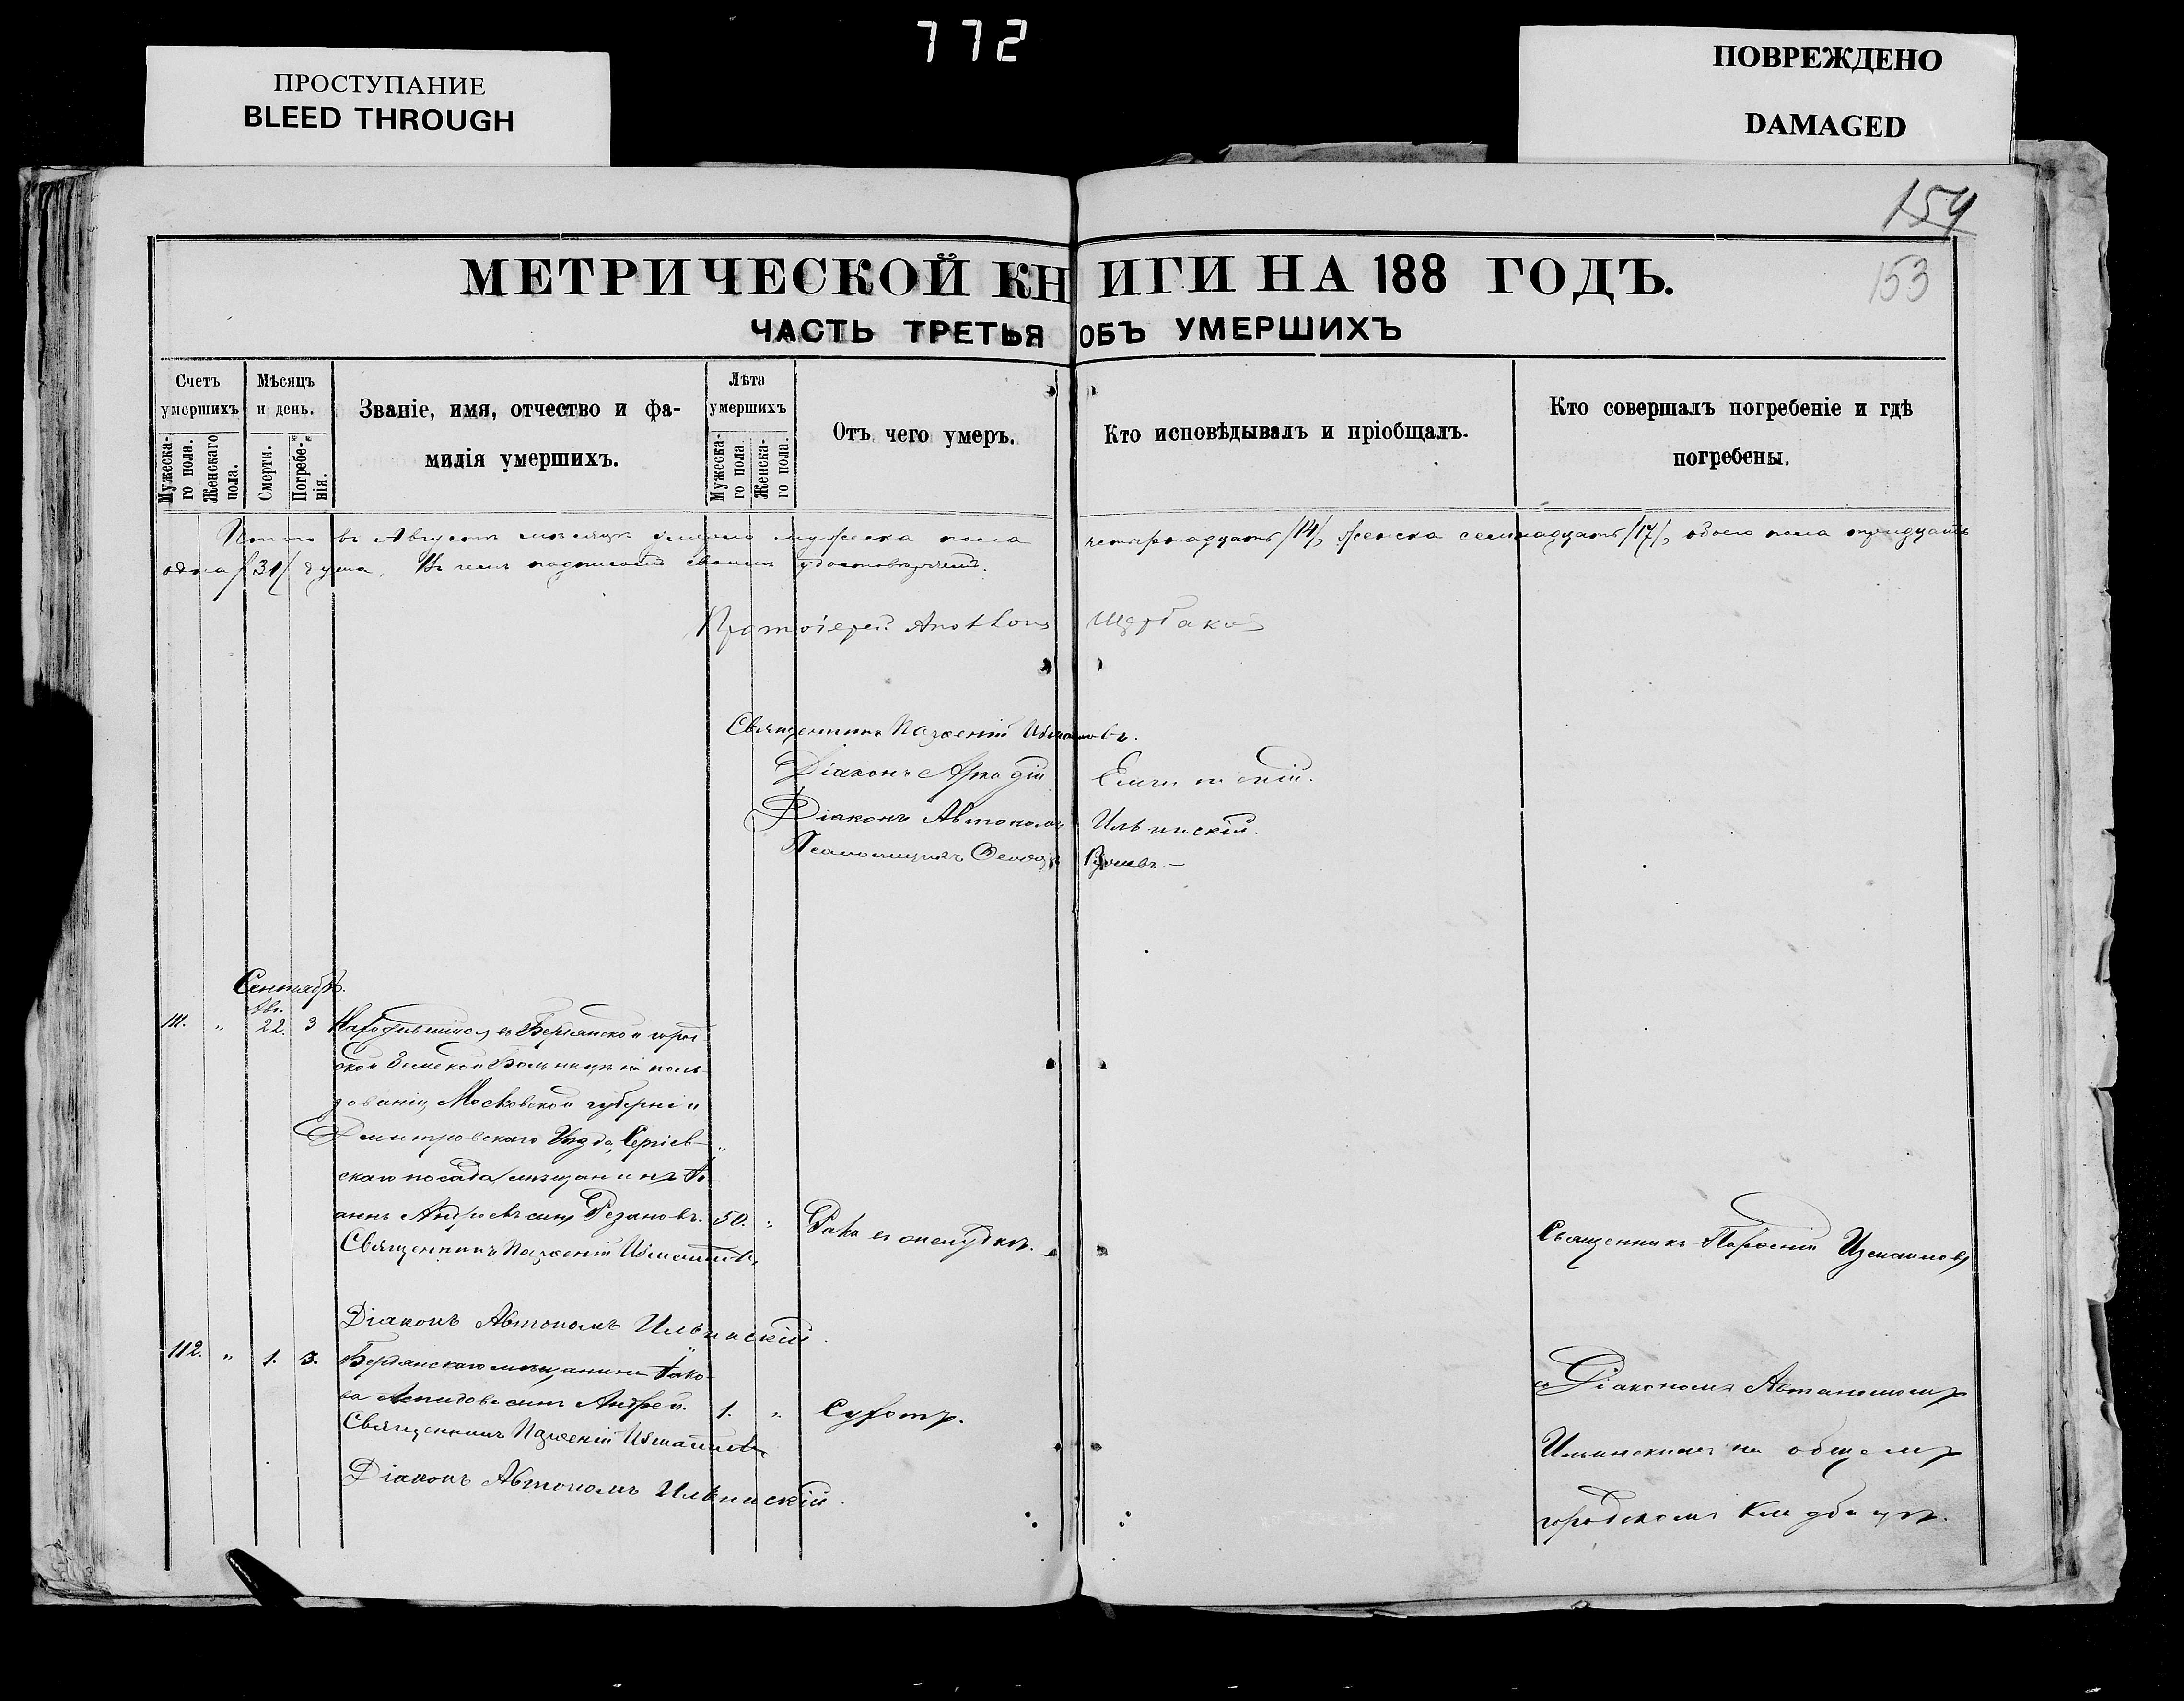 772
ПРОСТУПАНИЕ
BLEED THROUGH
ПОВРЕЖДЕНО
DAMAGED
154
153
МЕТРИЧЕСКОЙ КНИГИ НА 188 ГОДЪ.
ЧАСТЬ ТРЕТЬЯ ОБЪ УМЕРШИХЪ
Счетъ умершихъ
Мужеска-го пола.
Женскаго пола.
Мѣсяцъ и день.
Смерти.
Погребе-нія.
Званіе, имя, отчество и фа-
милія умершихъ.
Лѣта умершихъ
Мужеска-го пола
Женска-го пола.
Отъ чего умеръ.
Кто исповѣдывалъ и пріобщалъ.
Кто совершалъ погребеніе и гдѣ
погребены.
Итого въ Августѣ мѣсяцѣ умерло мужеска пола четырнадцать /14/, женска семнадцать /17/, обоего пола тридцать
одна /31/ душа. Въ чемъ подписомъ своимъ удостовѣряемъ.
Протоіерей Щербаковъ
Священникъ Парѳеній Измаиловъ.
Діаконъ Аркадій
Діаконъ Автономъ Ильинскій.
Псаломщикъ
Сентябрь.
Авг.
111. " 22. 3 Находившійся въ Бердянской город
ской Земской Больницѣ на поль
зованіи Московской губерніи
Дмитровскаго Уѣзда, Сергіев-
скаго посада мѣщанинъ Іо
аннъ Андреевъ сынъ Резановъ. 50. " Рака въ желудкѣ.
Священникъ Парѳеній Измаиловъ
Священникъ Парѳеній Измаиловъ
Діаконъ Автономъ Ильинскій.
112. " 1. 3. Бердянскаго мѣщанина Іако-
ва сынъ Андрей. 1. " Сухотъ.
Священникъ Парѳеній Измаиловъ
Діаконъ Автономъ Ильинскій.
съ Діакономъ Автономомъ
Ильинскимъ на общемъ
городскомъ кладбищѣ.